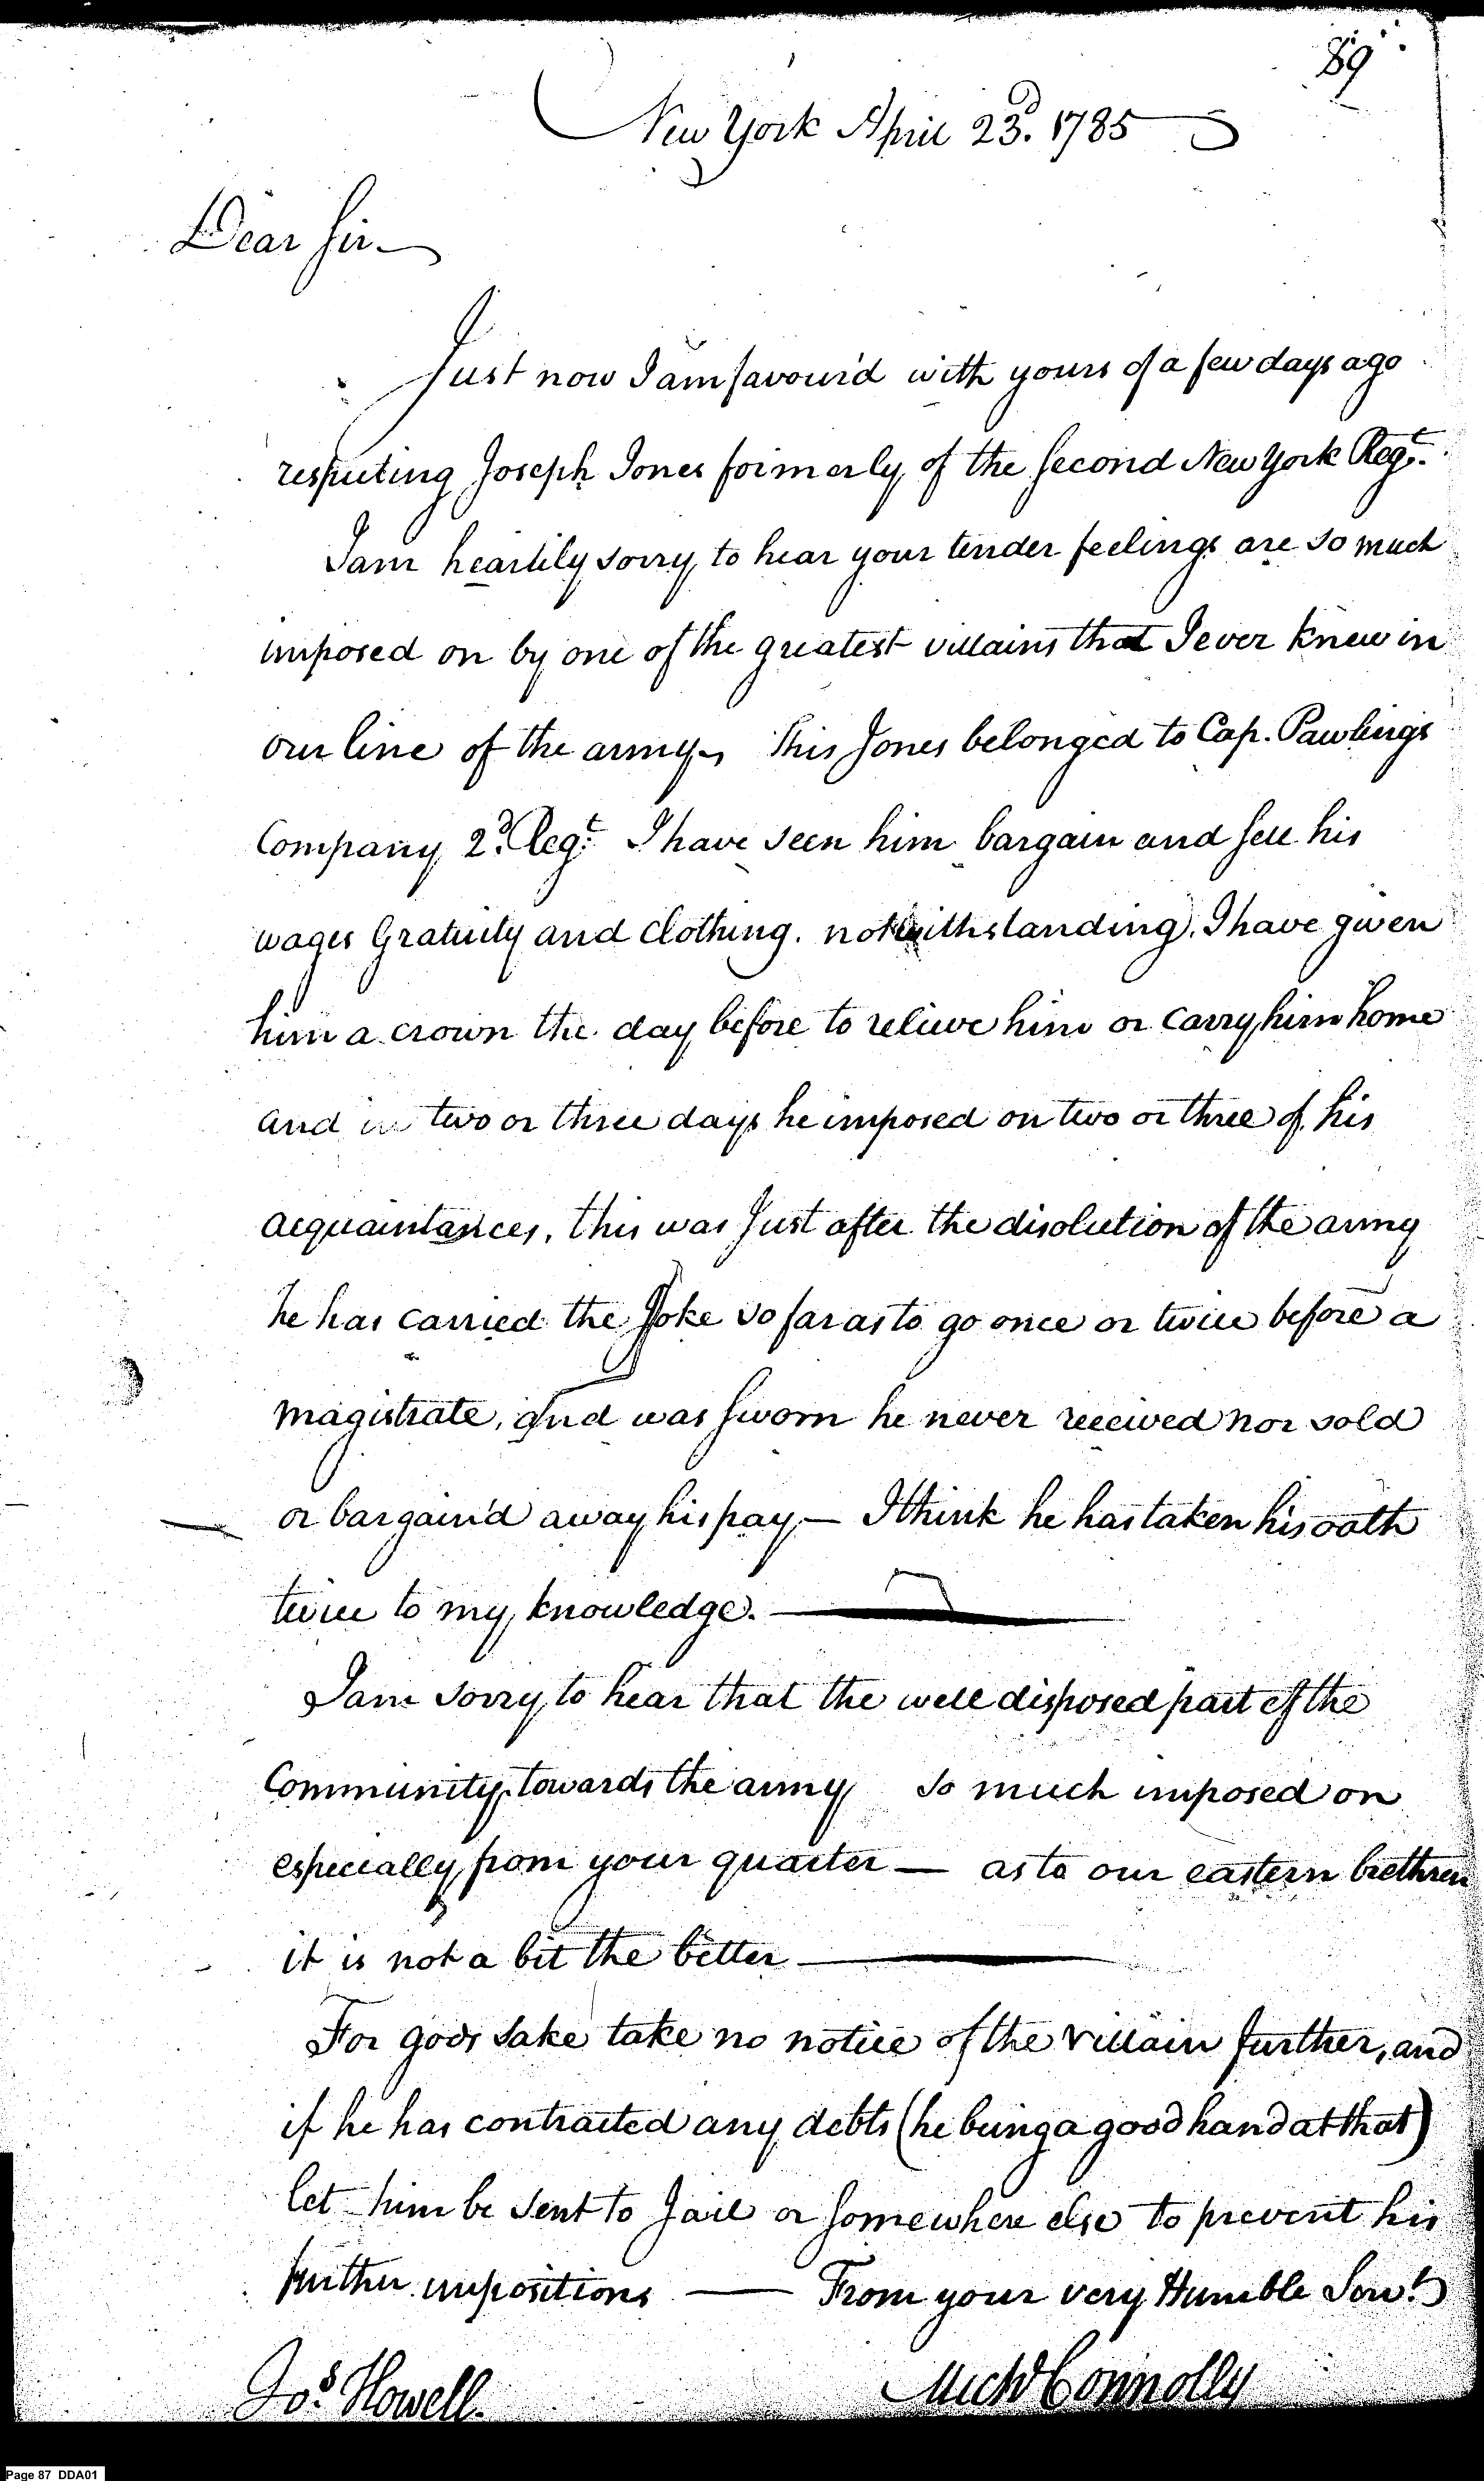 89
New York April 23d. 1785
Dear Sir
Just now I am favour'd with yours of a few days ago
respecting Joseph Jones formerly of the Second New York Regt.
I am heartily sorry to hear your tender feelings are so much
imposed on by one of the greatest villains that I ever knew in
our line of the army, This Jones belonged to Cap. Pawlings
Company 2d. Regt. I have seen him bargain and sell his
wages Gratuity and Clothing. notwithstanding, I have given
him a crown the day before to relieve him or carry him home
and in two or three days he imposed on two or three of his
acquaintances, this was Just after the disolution of the army
he has carried the Joke so far as to go once or twice before a
magistrate, and was sworn he never received nor sold
or bargain'd away his pay — I think he has taken his oath
twice to my knowledge. —
I am sorry to hear that the well disposed part of the
Community towards the army so much imposed on
especially from your quarter — as to our eastern brethren
it is not a bit the better —
For gods sake take no notice of the villain further, and
if he has contracted any debts (he being a good hand at that)
let him be sent to Jail or somewhere else to prevent his
further impositions — From your very Humble Servt.
Jos. Howell. Michl Connolly
Page 87 DDA01